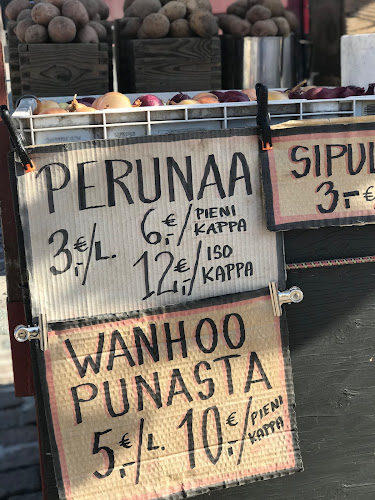 PERUNAA
3.-€/L. 6.-€/PIENI KAPPA
12.-€/ISO KAPPA
SIPUL
3.-€/
WANHOO
PUNASTA
5.-€/L. 10.-€/PIENI KAPPA